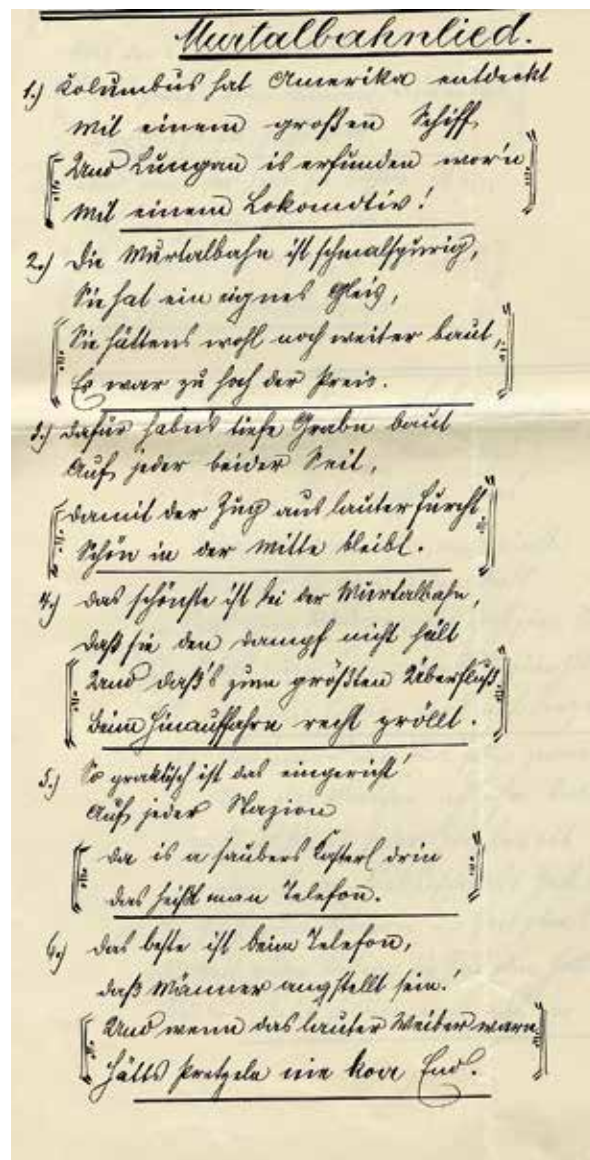 Murtalbahnlied.
1.) Kolumbus hat Amerika entdeckt
Mit einem großen Schiff,
Und Lungau is erfunden wor'n
Mit einem Lokomotiv!
2.) Die Murtalbahn ist schmalspurig,
Sie hat ein eignes Gleis,
Sie hättens wohl noch weiter baut,
Es war zu hoch der Preis.
3.) Dafür habns tiefe Grabn baut
Auf jeder beider Seit,
Damit der Zug aus lauter Furcht
Schön in der Mitte bleibt.
4.) Das schönste ist bei der Murtalbahn,
Daß sie den Dampf nicht hält
Und daß's zum größten Überfluß
Beim Hinauffahrn recht pröllt.
5.) So praktisch ist das eingericht'
Auf jeder Stazion
Da is a saubers Kasterl drin
Das heißt man Telefon.
6.) Das beste ist beim Telefon,
Daß Männer angstellt sein!
Und wenn das lauter Weiber warn
Hätts Pratzeln nie koa End.